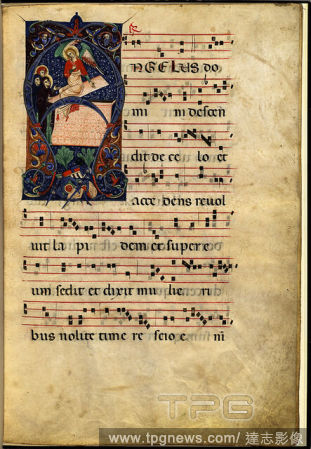 NGELUS do
mi ni descen
dit de ce lo et
acce dens revol
vit la pi dem et super e
um sedit et dixit mu lie ri
bus nolite time re scio e ni
TPG
www.tpgnews.com/ 達志影像